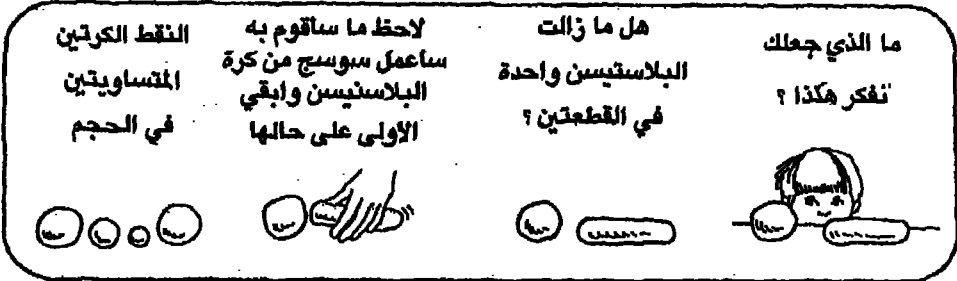 النقط الكرتين
المتساويتين
في الحجم
لاحظ ما سأقوم به
ساعمل سوسج من كرة
البلاسنيسن وابقي
الأولى على حالها
هل ما زالت
البلاستيسن واحدة
في القطعتين ؟
ما الذي جعلك
نفكر هكذا ؟